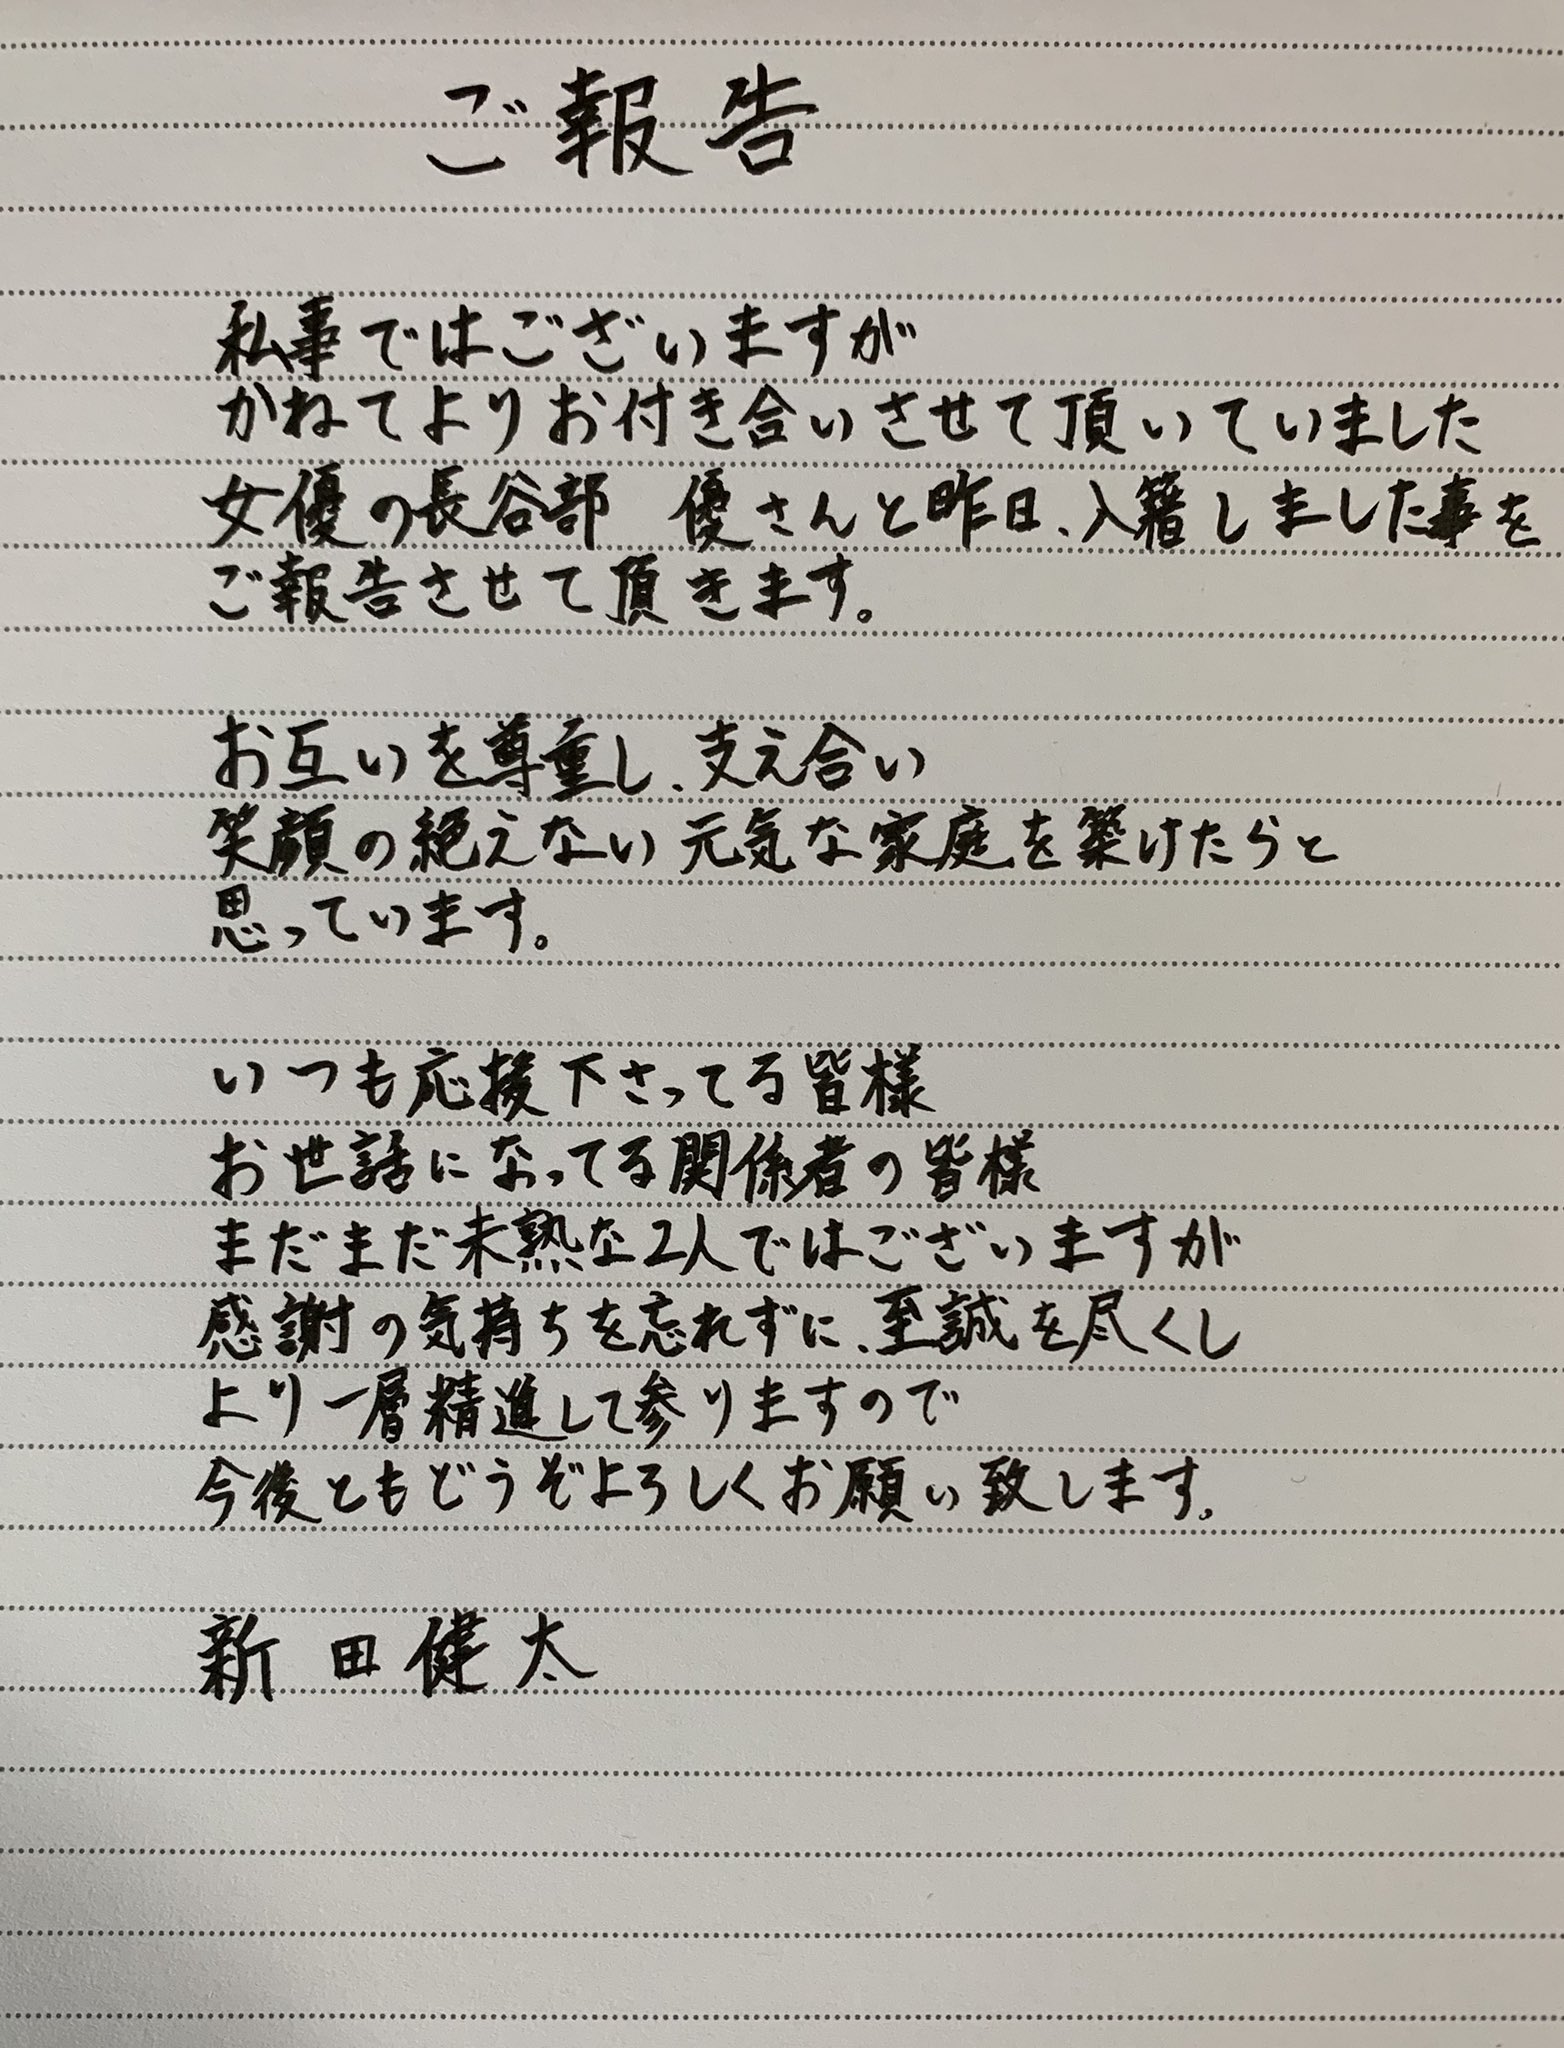 ご報告
私事ではございますが
かねてよりお付き合いさせて頂いていました
女優の長谷部 優さんと昨日、入籍しました事を
ご報告させて頂きます。
お互いを尊重し、支え合い
笑顔の絶えない元気な家庭を築けたらと
思っています。
いつも応援下さってる皆様
お世話になってる関係者の皆様
まだまだ未熟な2人ではございますが
感謝の気持ちを忘れずに、至誠を尽くし
より一層精進して参りますので
今後ともどうぞよろしくお願い致します。
新田健太